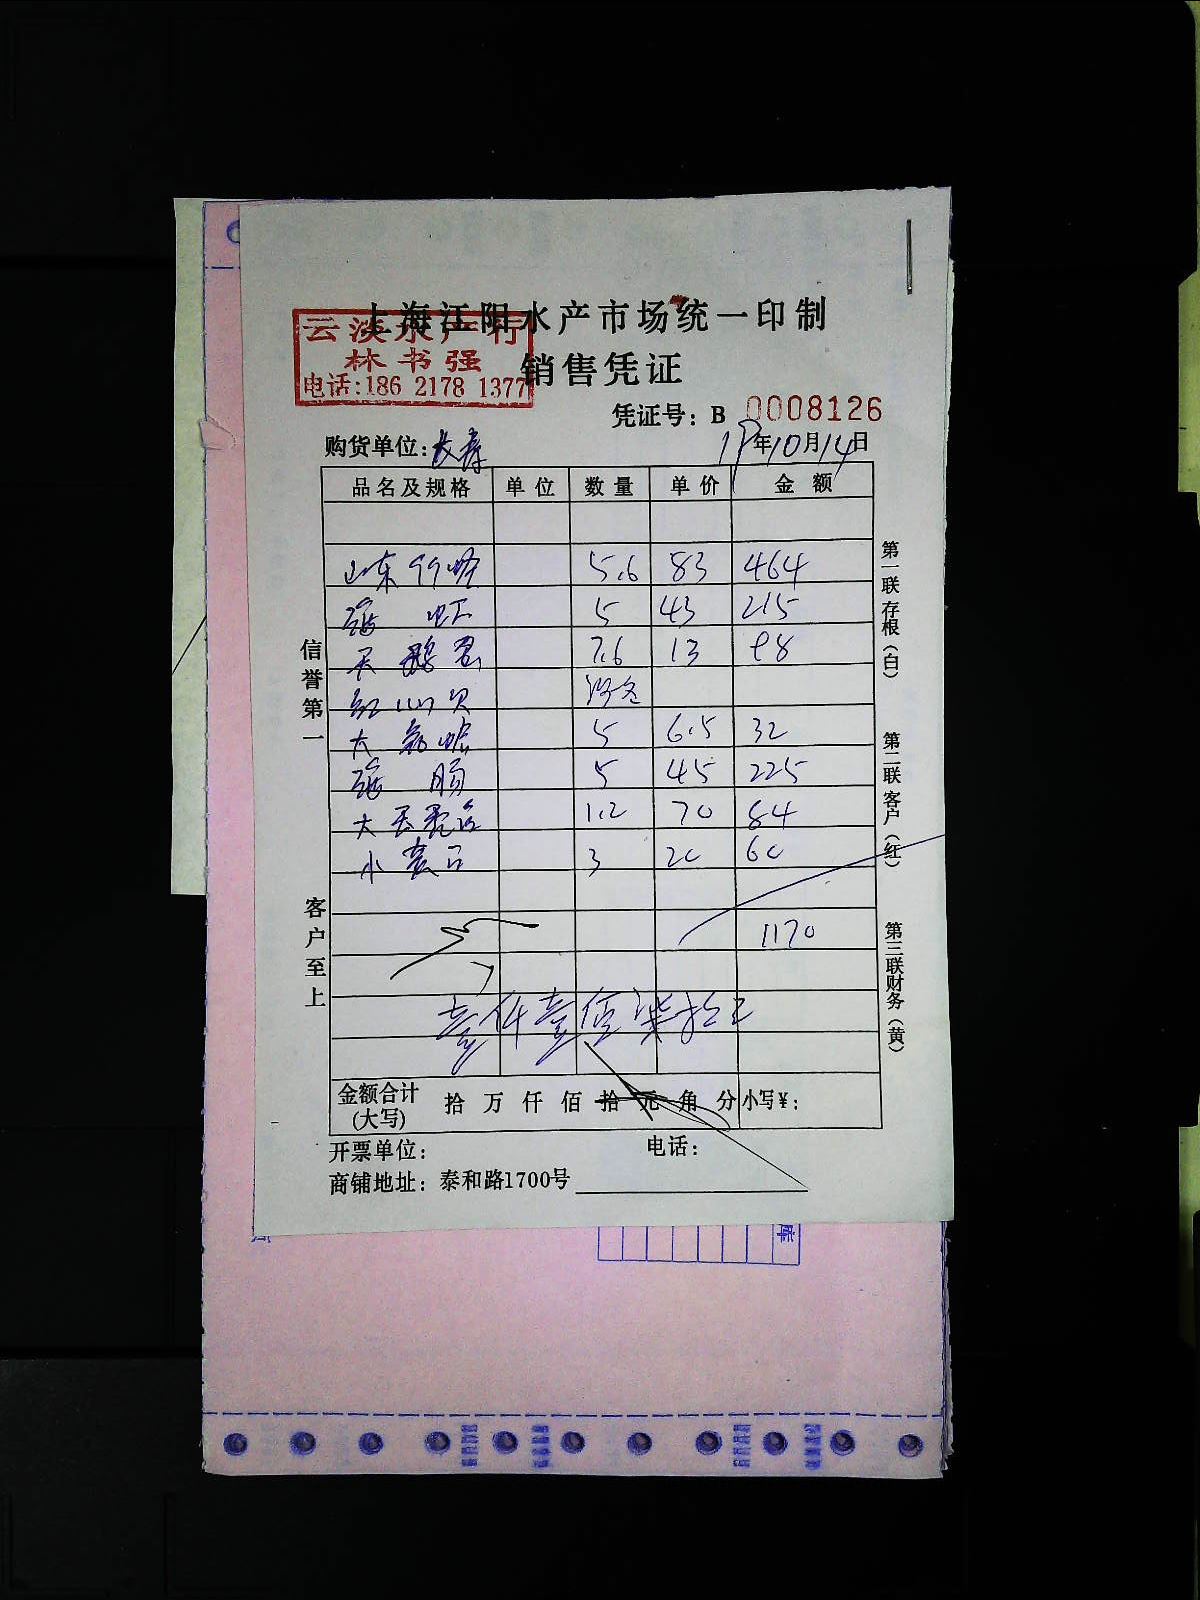 上海江阳水产市场统一印制
云淡水产行
林书强
电话:186 2178 1377
销售凭证
凭证号: B 0008126
购货单位:长寿 19年10月14日
品名及规格 单位 数量 单价 金额
山东 5.6 83 464
虾 5 43 215
天鹅蛋 7.6 13 98
红 贝
大 蛤 5 6.5 32
肠 5 45 225
大 1.2 70 84
小 3 20 60
1170
壹仟壹佰柒拾正
金额合计(大写) 拾 万 仟 佰 拾 元 角 分 小写¥:
开票单位: 电话:
商铺地址: 泰和路1700号
信誉第一
客户至上
第一联存根(白)
第二联客户(红)
第三联财务(黄)